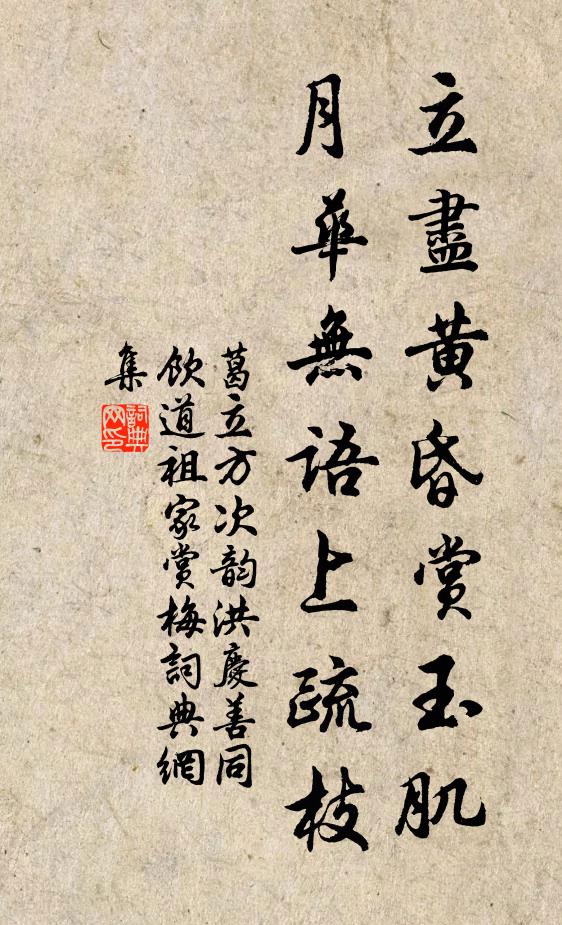 立盡黄昏賞玉肌
月華無語上疏枝
葛立方次韵洪慶善同
飲道祖家賞梅詞典網
集
詞典網印